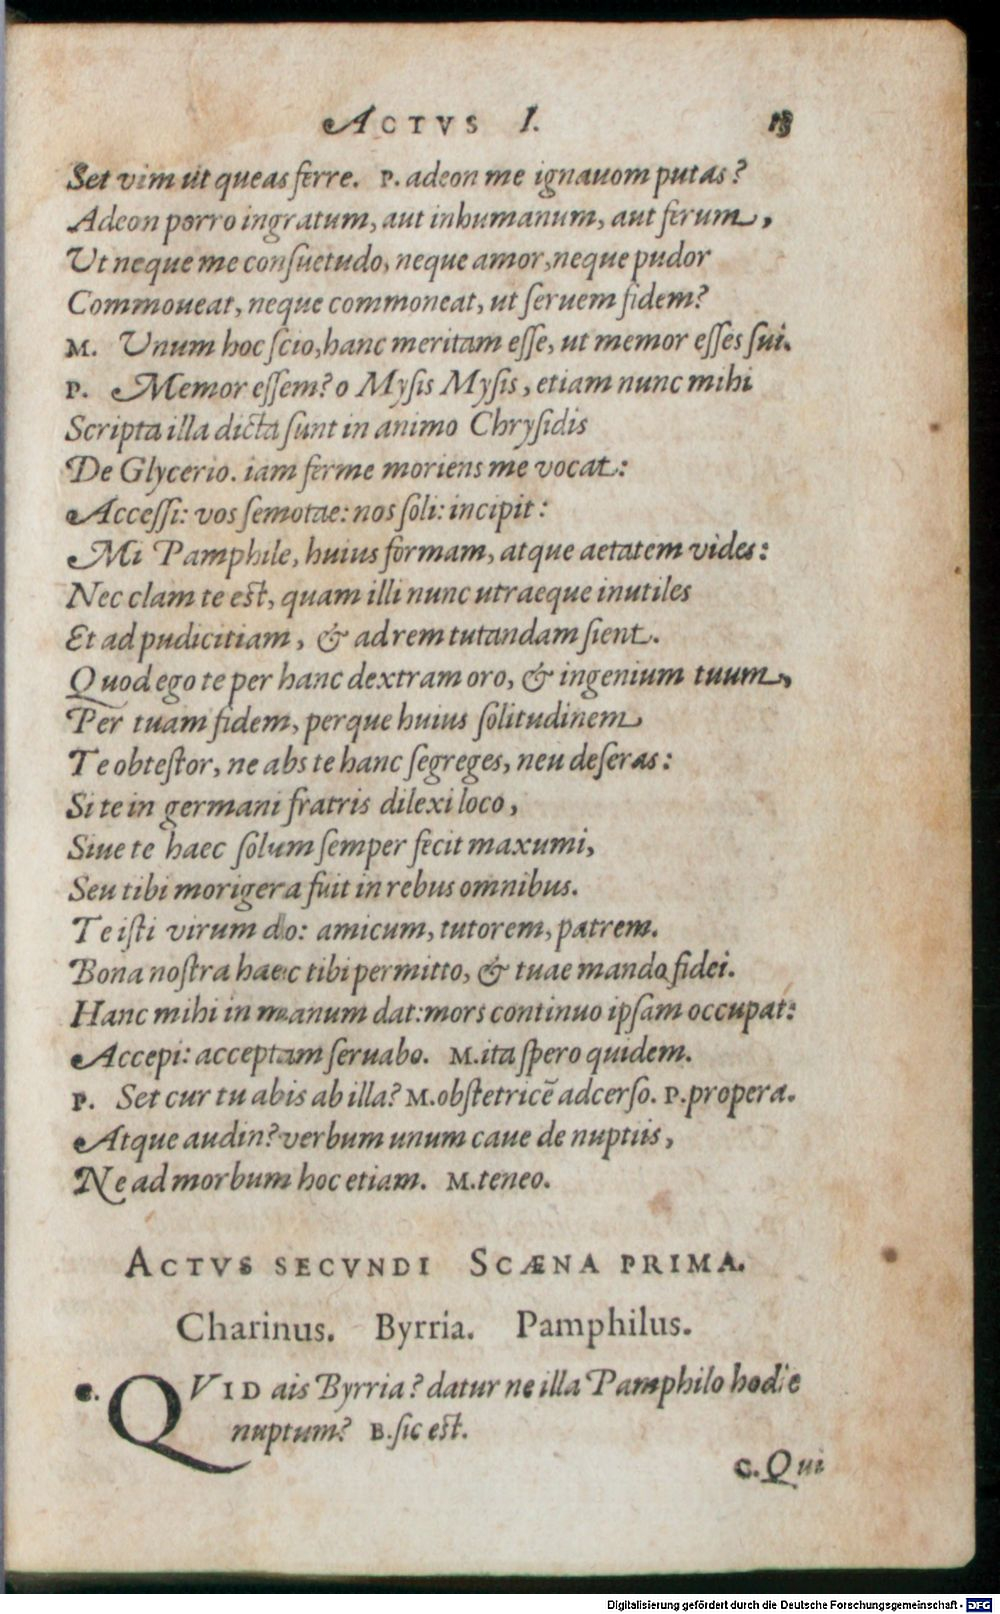 ACTVS I. 13
Set vim ut queas ferre. P. adeon me ignauom putas?
Adeon porro ingratum, aut inhumanum, aut ferum,
Ut neque me consuetudo, neque amor, neque pudor
Commoueat, neque commoneat, ut seruem fidem?
M. Unum hoc scio, hanc meritam esse, ut memor esses sui.
P. Memor essem? o Mysis Mysis, etiam nunc mihi
Scripta illa dicta sunt in animo Chrysidis
De Glycerio. iam ferme moriens me vocat:
Accessi: vos semotae: nos soli: incipit:
Mi Pamphile, huius formam, atque aetatem vides:
Nec clam te est, quam illi nunc utraeque inutiles
Et ad pudicitiam, & ad rem tutandam sient.
Quod ego te per hanc dextram oro, & ingenium tuum,
Per tuam fidem, perque huius solitudinem
Te obtestor, ne abs te hanc segreges, neu deseras:
Si te in germani fratris dilexi loco,
Siue te haec solum semper fecit maxumi,
Seu tibi morigera fuit in rebus omnibus.
Te isti virum do: amicum, tutorem, patrem.
Bona nostra haec tibi permitto, & tuae mando fidei.
Hanc mihi in manum dat: mors continuo ipsam occupat:
Accepi: acceptam seruabo. M. ita spero quidem.
P. Set cur tu abis ab illa? M. obstetricē adcerso. P. propera.
Atque audin? verbum unum caue de nuptiis,
Ne ad morbum hoc etiam. M. teneo.
ACTVS SECVNDI SCÆNA PRIMA.
Charinus. Byrria. Pamphilus.
C. QVID ais Byrria? datur ne illa Pamphilo hodie
nuptum? B. sic est.
C. Qui
Digitalisierung gefördert durch die Deutsche Forschungsgemeinschaft - DFG